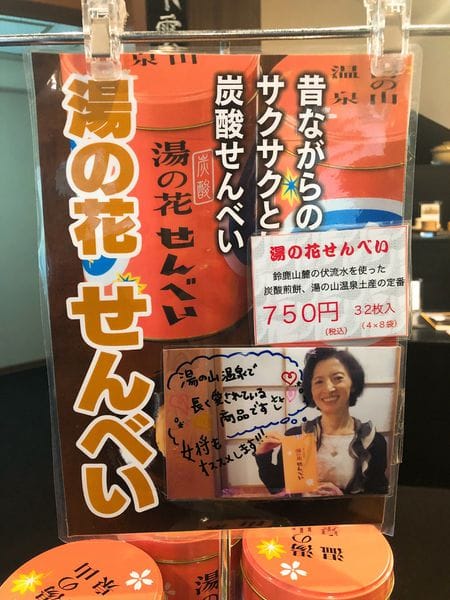 湯の花せんべい
昔ながらの
サクサクと
炭酸せんべい
炭酸
湯の花せんべい
湯の花せんべい
鈴鹿山麓の伏流水を使った
炭酸煎餅、湯の山温泉土産の定番
750円
(税込)
32枚入
(4×8袋)
湯の山温泉で
長く愛されている
商品ですヨ
女将も
おススメします!!!
せんべい